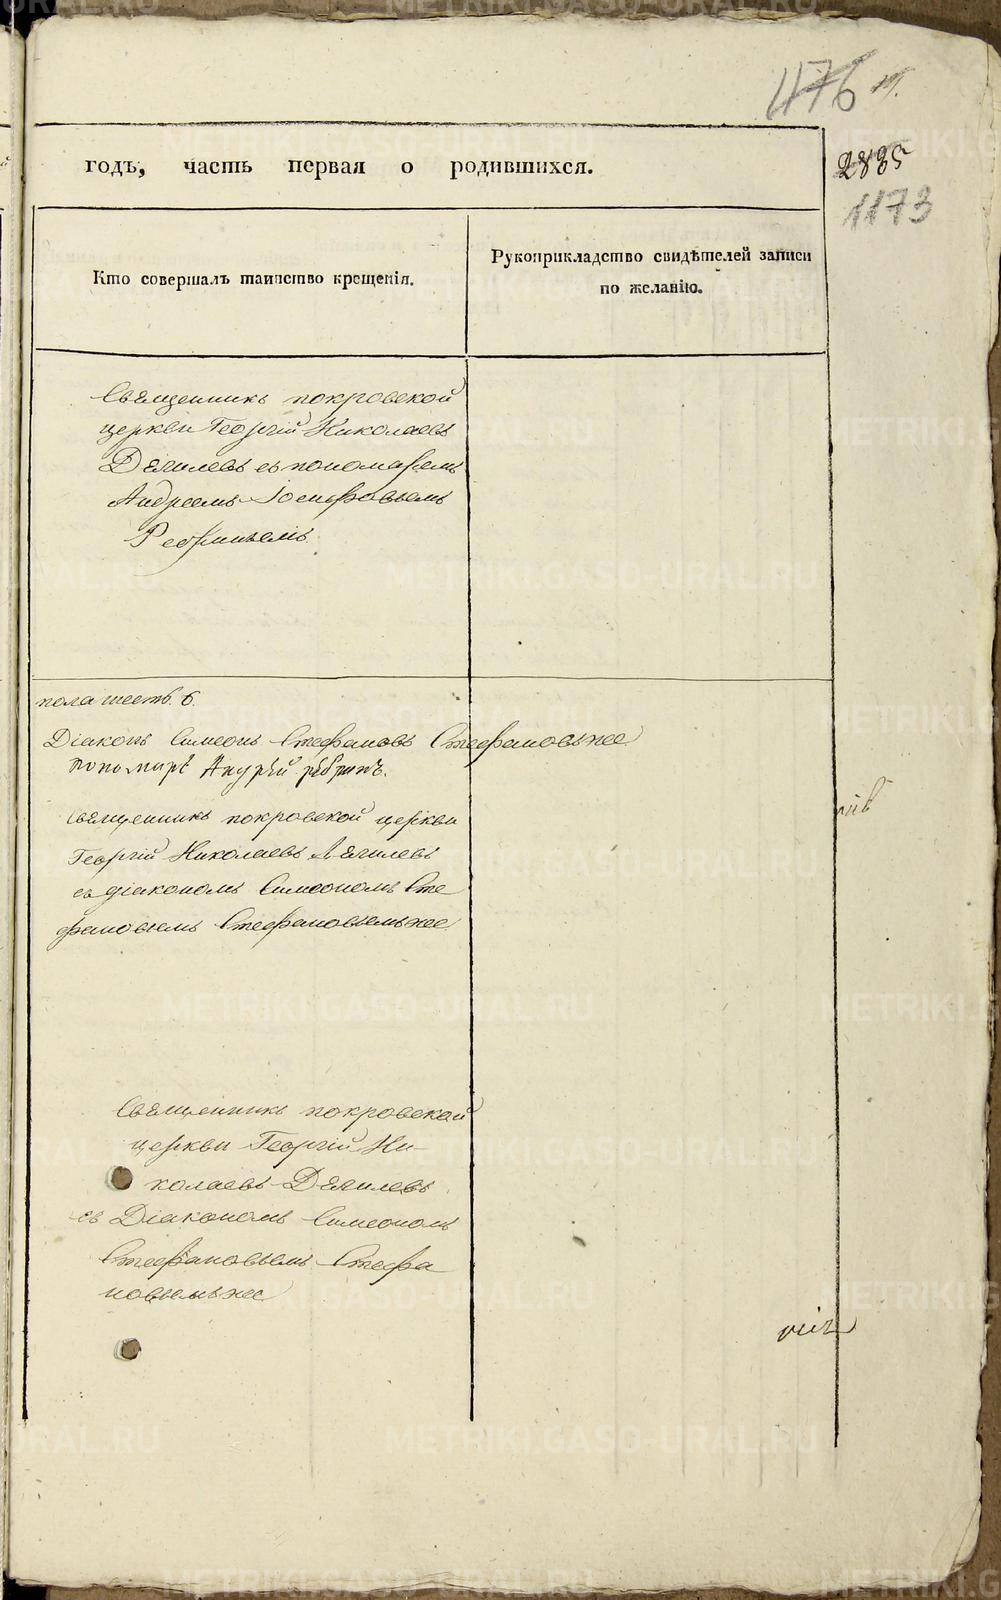 476
2885
1173
годъ, часть первая о родившихся.
Кто совершалъ таинство крещенія.
Рукоприкладство свидѣтелей записи
по желанію.
Священникъ покровской
церкви Георгій Николаевъ
Дягилевъ съ пономаремъ
Андреемъ Іосифовымъ
пола шесть. 6.
Діаконъ Симеонъ Стефановъ Стефановыхъ же
Пономарь Андрей
священникъ покровской церкви
Георгій Николаевъ Дягилевъ
съ діакономъ Симеономъ Сте
фановымъ
Священникъ покровской
церкви Георгій Ни-
колаевъ Дягилевъ
съ Діакономъ Симеономъ
Стефановымъ Стефа
METRIKI.GASO-URAL.RU